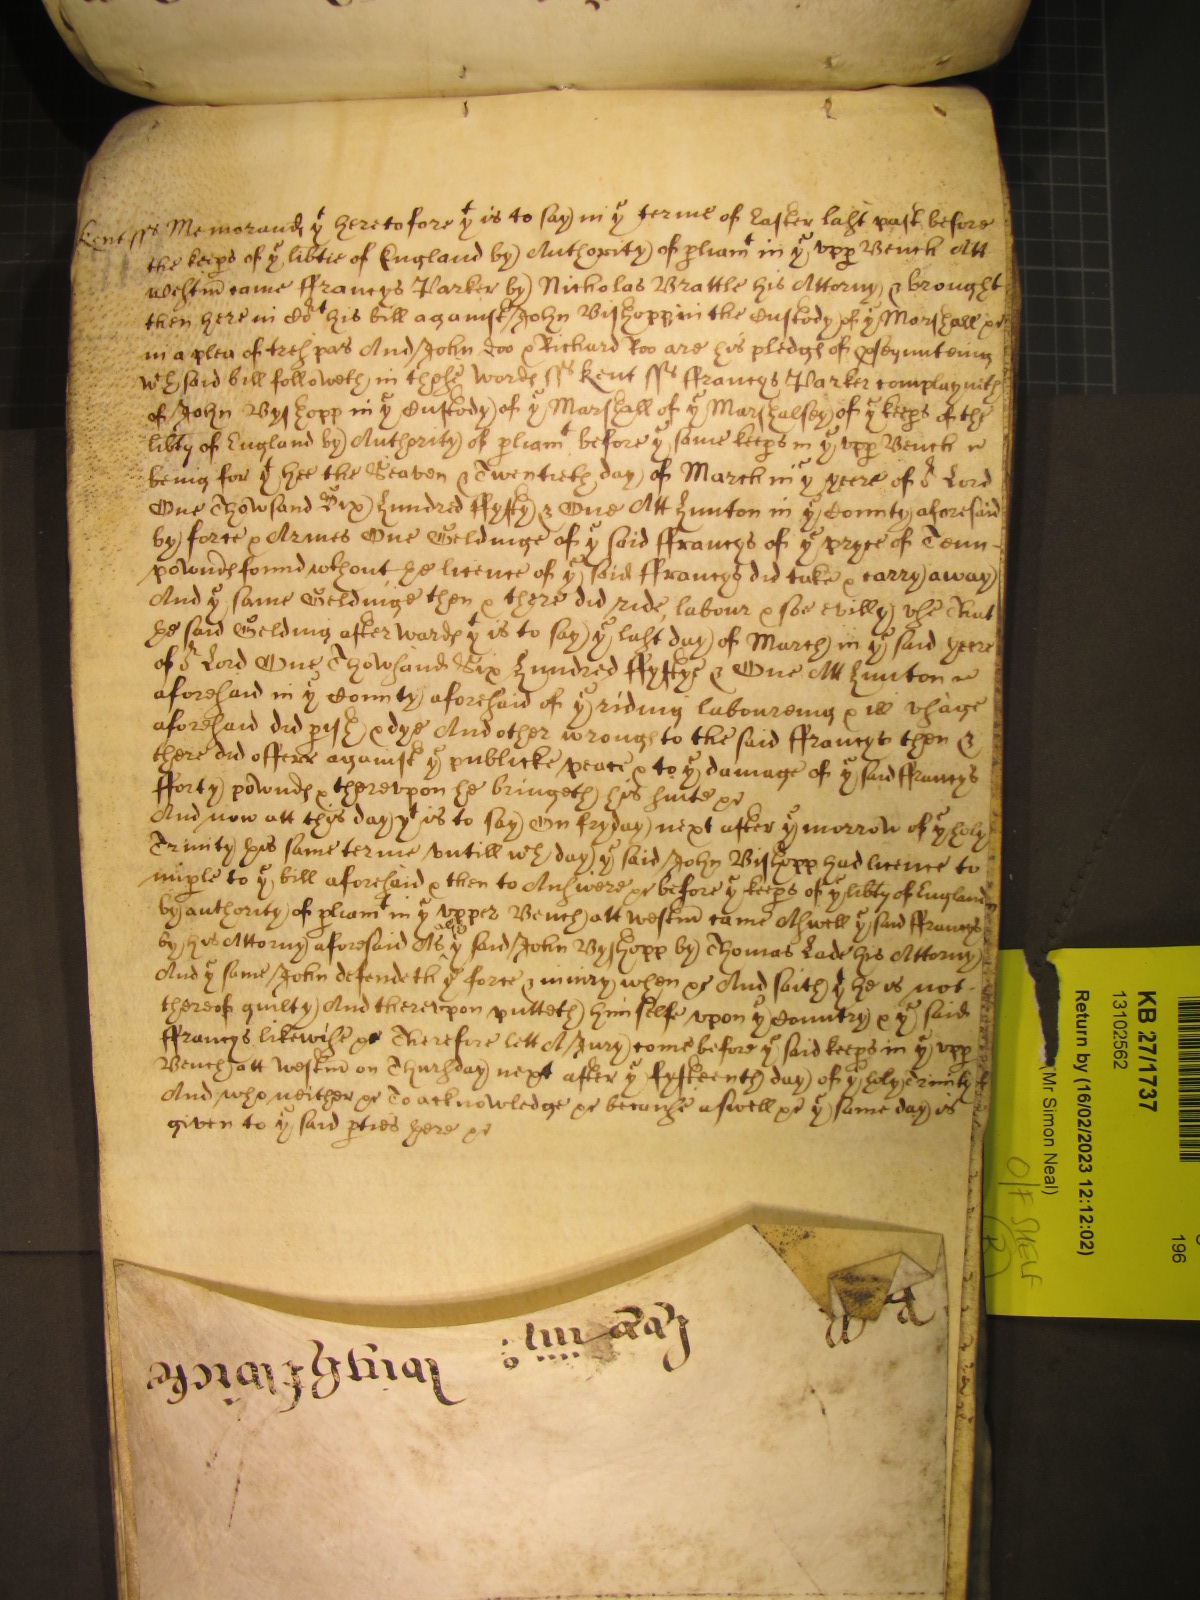 Kent ss Memorand yt heretofore yt is to say in ye terme of Easter last past before
the keeps of ye libtie of England by Authority of pliamt in ye vpp Bench Att
Westm came ffrancys Parker by Nicholas Brattle his Attorny & brought
then here in Cort his bill against John Bishopp in the Custody of ye Marshall &c
in a plea of trespas And John Doo & Richard Roo are his pledgs of psecuteing
wch said bill followeth in these words ss Kent ss ffrancys Parker complayneth
of John Byshopp in ye Custody of ye Marshall of ye Marshalsey of ye keeps of the
libty of England by Authority of pliamt before ye same keeps in ye vpp Bench
being for yt hee the Seaven & Twentieth day of March in ye yeere of or Lord
One Thowsand Six Hundred ffyfty & One Att Hunton in ye County aforesaid
by force & Armes One Geldinge of ye said ffrancys of ye pryce of Tenn
pownds found wthout he licence of ye said ffrancys did take & carry away
And ye same Geldinge then & there did ride, labour & soe evilly vse That
he said Gelding afterwards yt is to say ye last day of March in ye said yeere
of or Lord One Thowsand Six Hundred ffyftye & One Att Hunton
aforesaid in ye County aforesaid of ye riding laboureing & ill vsage
aforesaid did pish & dye And other wrongs to the said ffrancys then &
there did offerr against ye publicke peace & to ye damage of ye said ffrancys
fforty pownds & therevpon he bringeth his suite &c
And now att this day yt is to say On fryday next after ye morrow of ye holy
Trinity his same terme vntill wch day ye said John Bishopp had licence to
imple to ye bill aforesaid & then to Answere &c before ye keeps of ye libty of England
by authority of pliamt in ye vpper Bench att Westm came Aswell ye said ffrancys
by his Attorny aforesaid As ye said John Byshopp by Thomas Lade his Attorny
And ye same John defendeth ye force & iniury when &c And saith yt he is not
thereof guilty And therevpon putteth himselfe vpon ye Country & ye said
ffrancys likewise &c Therefore lett A Jury come before ye said keeps in ye vpp
Bench att Westm on Thursday next after ye fyfteenth day of ye holy Trinity
And who neither &c To acknowledge &c because aswell &c ye same day is
given to ye said pties here &c
KB 27/1737
13102562
Return by (16/02/2023 12:12:02)
(Mr Simon Neal)
196
O/F SHELF
(R)